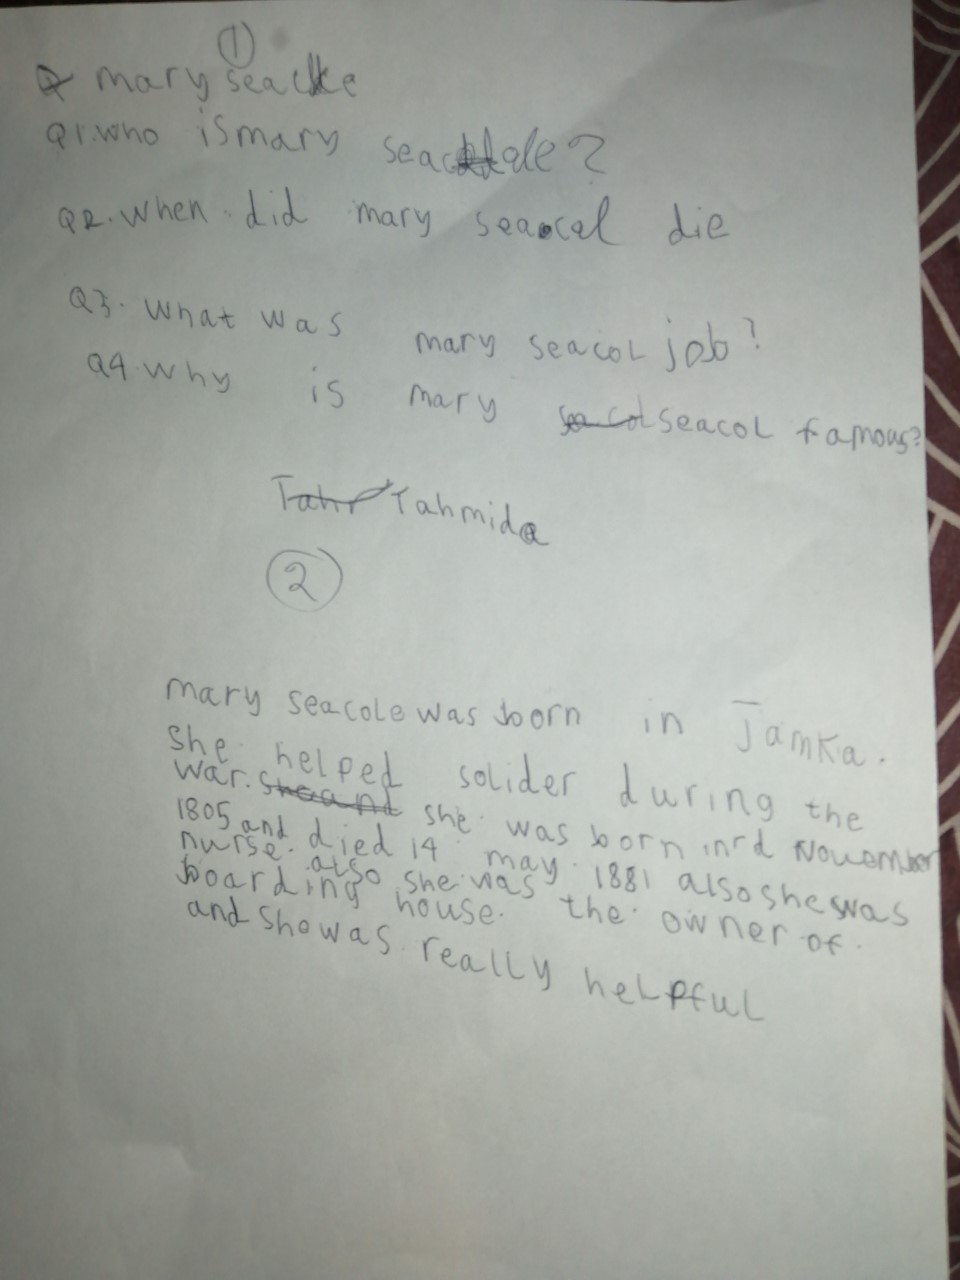 ①
mary seacke
Q1.who is mary seacale?
Q2.When did mary seacal die
Q3.What was mary seacol job?
Q4.Why is mary seacol famous?
Tahmida
②
mary seacole was born in Jamka.
She helped solider during the
war. she was born in rd November
1805 and died 14 may 1881 also she was
nurse. also she was the owner of.
boarding house.
and she was really helpful